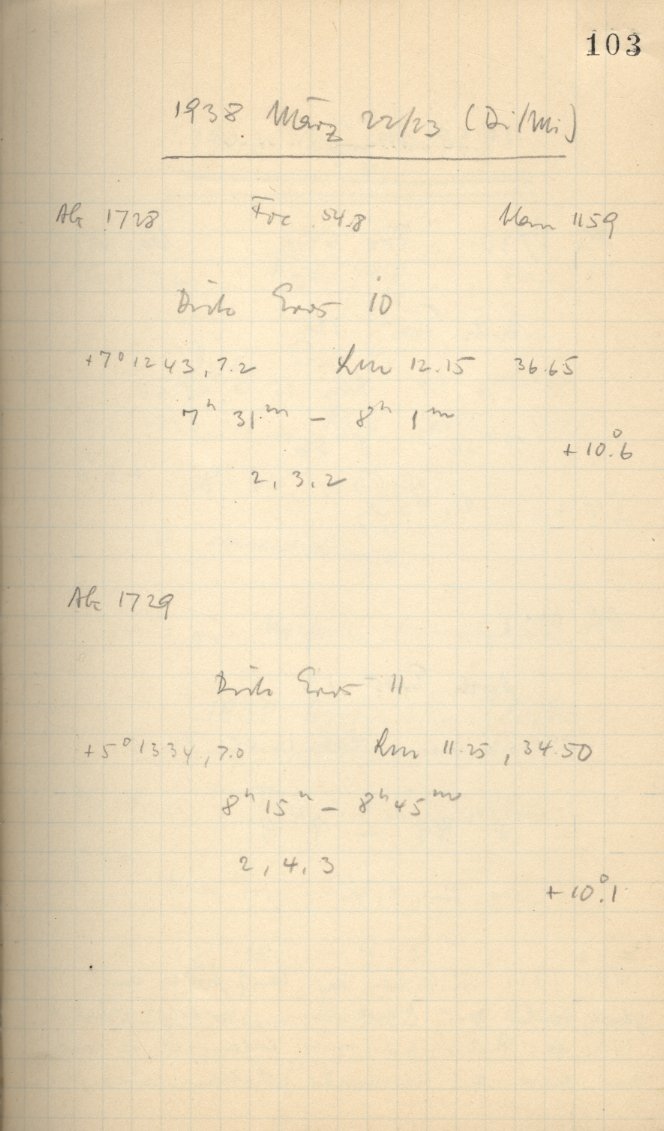 103
1938 März 22/23 (Di/Mi)
1728 Foc 54.8 1159
Eros 10
+7° 1243, 7.2 12.15 36.65
7h 31m – 8h 1m
+10.°6
2, 3, 2
1729
Eros 11
+5° 1334, 7.0 11.25, 34.50
8h 15m – 8h 45m
2, 4, 3
+10.°1